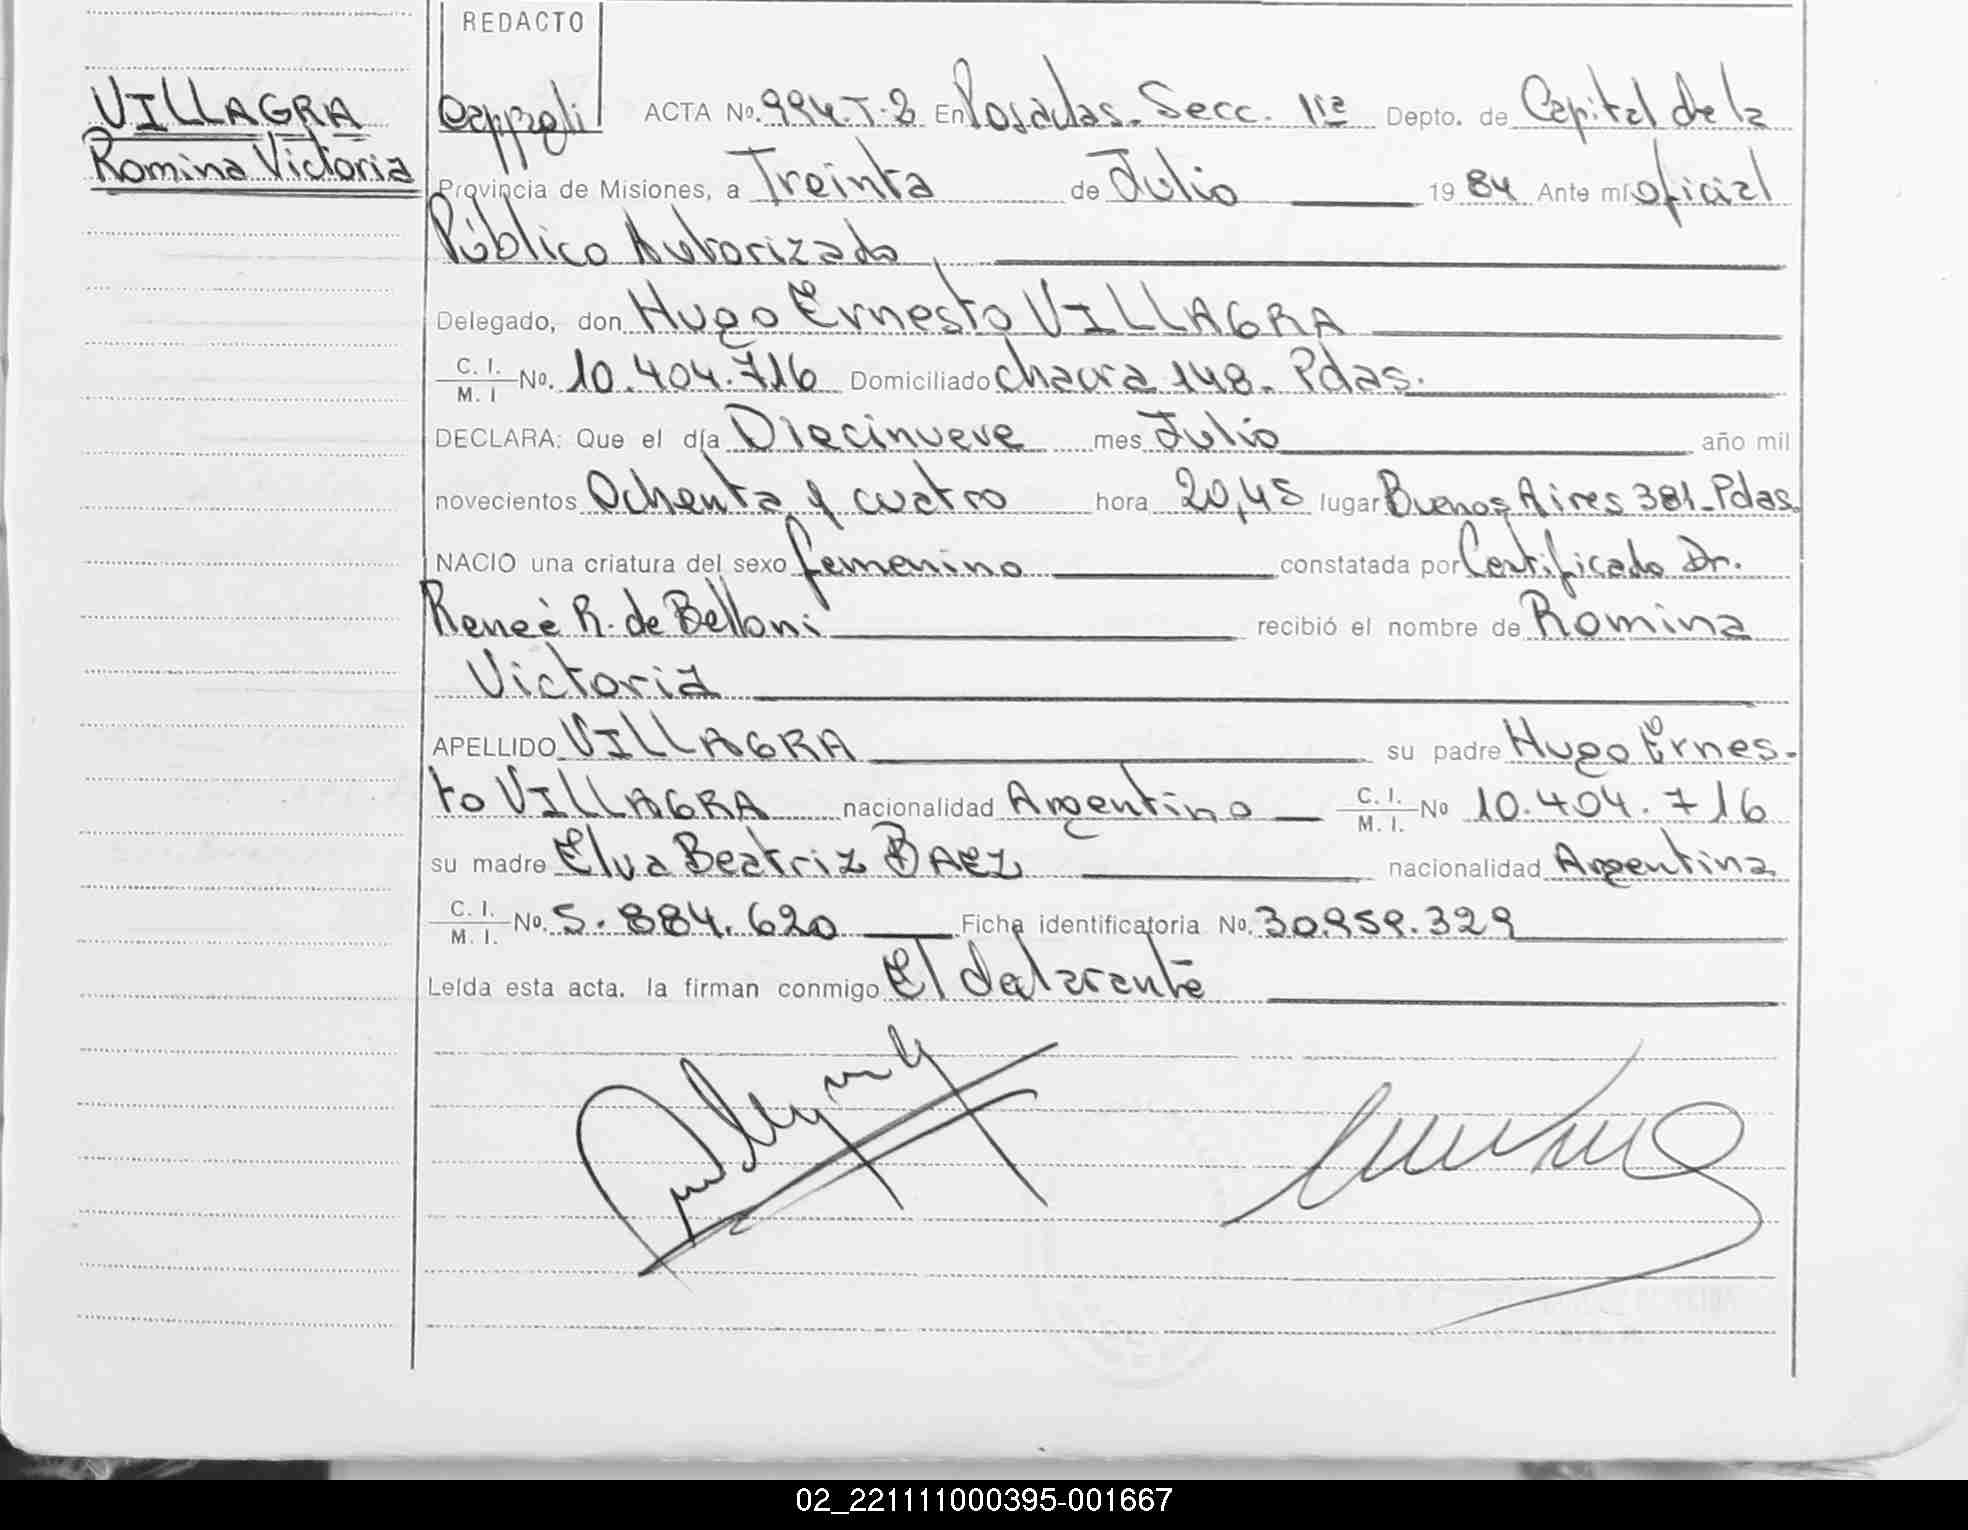 REDACTO
VILLAGRA
Romina Victoria
ACTA No. 994.T.2 En Posadas. Secc. 1ra Depto. de Capital de la
Provincia de Misiones, a Treinta de Julio 19 84 Ante mí oficial
Público Autorizado
Delegado, don Hugo Ernesto VILLAGRA
C. I. M. I No. 10.404.716 Domiciliado chacra 148. Pdas.
DECLARA: Que el día Diecinueve mes Julio año mil
novecientos Ochenta y cuatro hora 20,45 lugar Buenos Aires 381-Pdas.
NACIO una criatura del sexo femenino constatada por Certificado Dr.
Reneé R. de Belloni recibió el nombre de Romina
Victoria
APELLIDO VILLAGRA su padre Hugo Ernes-
to VILLAGRA nacionalidad Argentino C. I. M. I. No 10.404.716
su madre Elva Beatriz BAEZ nacionalidad Argentina
C. I. M. I. No. 5.884.620 Ficha identificatoria No. 30.959.329
Leída esta acta. la firman conmigo El declarante
02_221111000395-001667